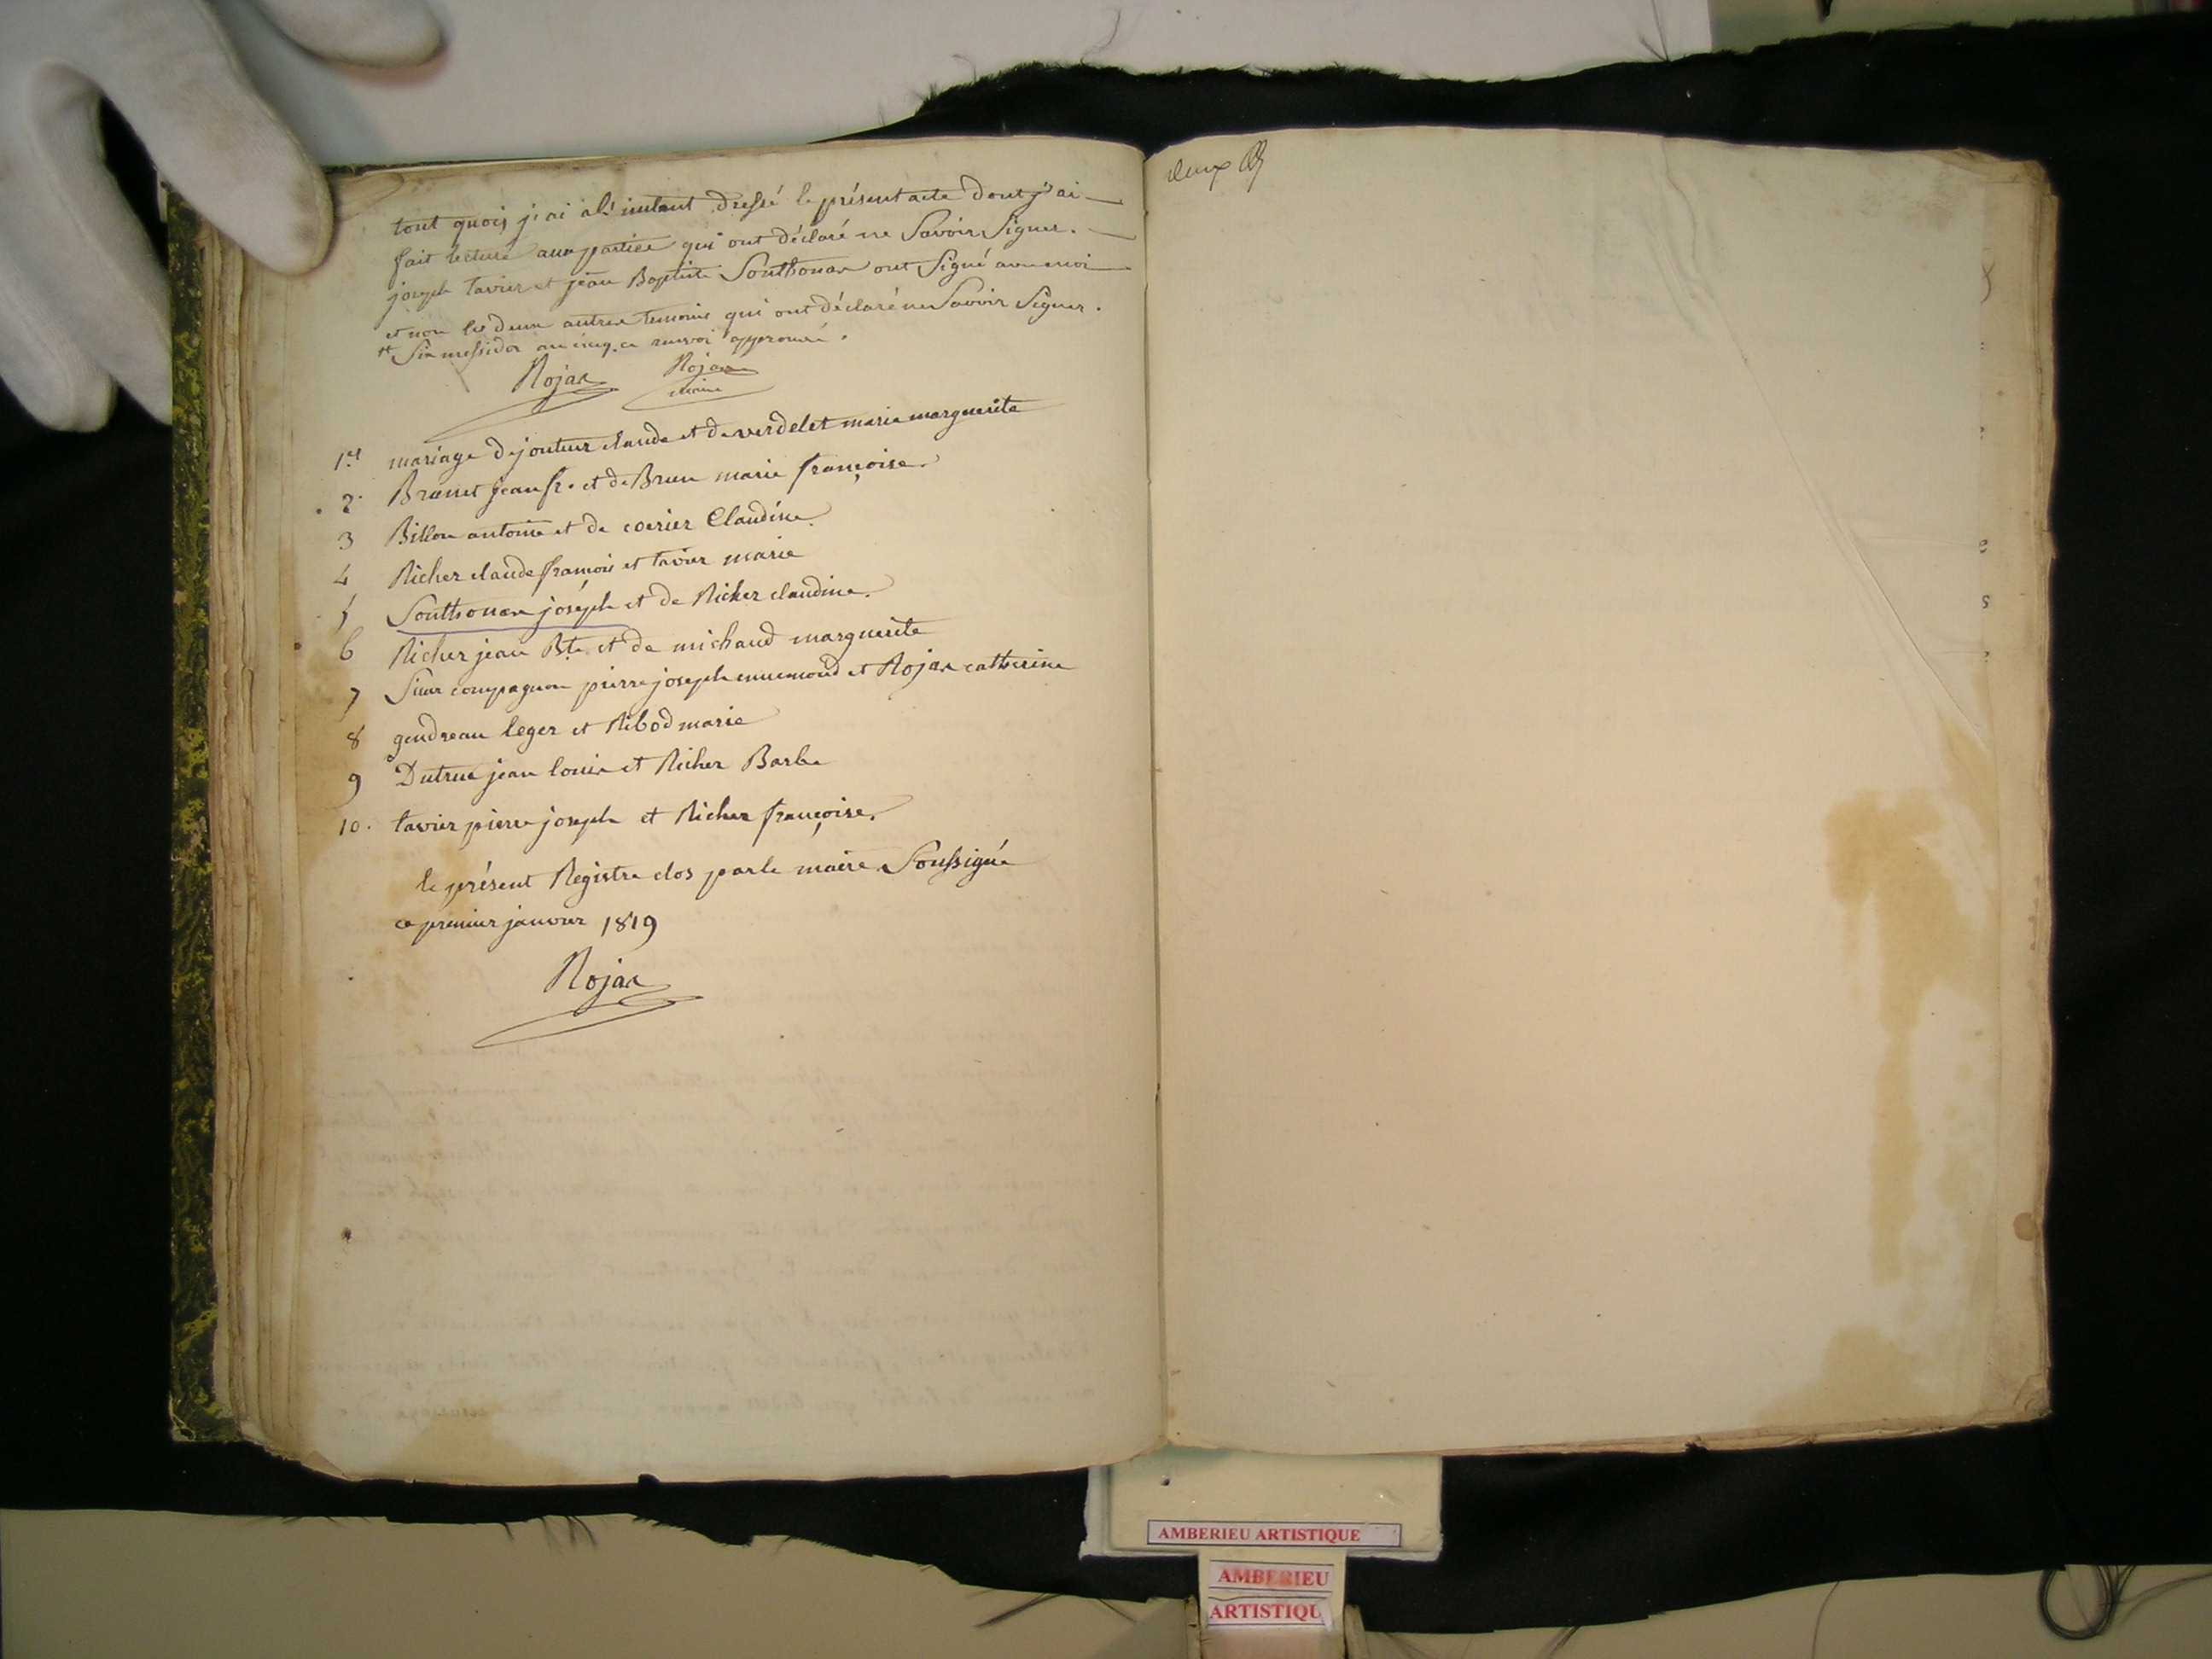 tout quoi j'ai à l'instant dressé le présent acte dont j'ai
fait lecture aux parties qui ont déclaré ne Savoir Signer.
joseph tavier et jean Baptiste Southonax ont Signé avec moi
et non les deux autres temoins qui ont déclaré ne Savoir Signer.
Six messidor an cinq. ce renvoi approuvé.
Rojax Rojax
maire
1er mariage de jouteur claude et de verdelet marie marguerite
2 Brunet jean fr. et de Brun marie françoise.
3 Billon antoine et de Claudine
4 Richer claude françois et tavier marie
5 Southonax joseph et de Richer claudine.
6 Richer jean Bte. et de michaud marguerite
7 compagnon pierre joseph ennemond et Rojax catherine
8 gendreau leger et Ribod marie
9 Dutruc jean louis et Richer Barbe
10. tavier pierre joseph et Richer françoise.
le présent Registre clos par le maire Soussigné
ce premier janvier 1819
Rojax
deux
AMBERIEU ARTISTIQUE
AMBERIEU
ARTISTIQU